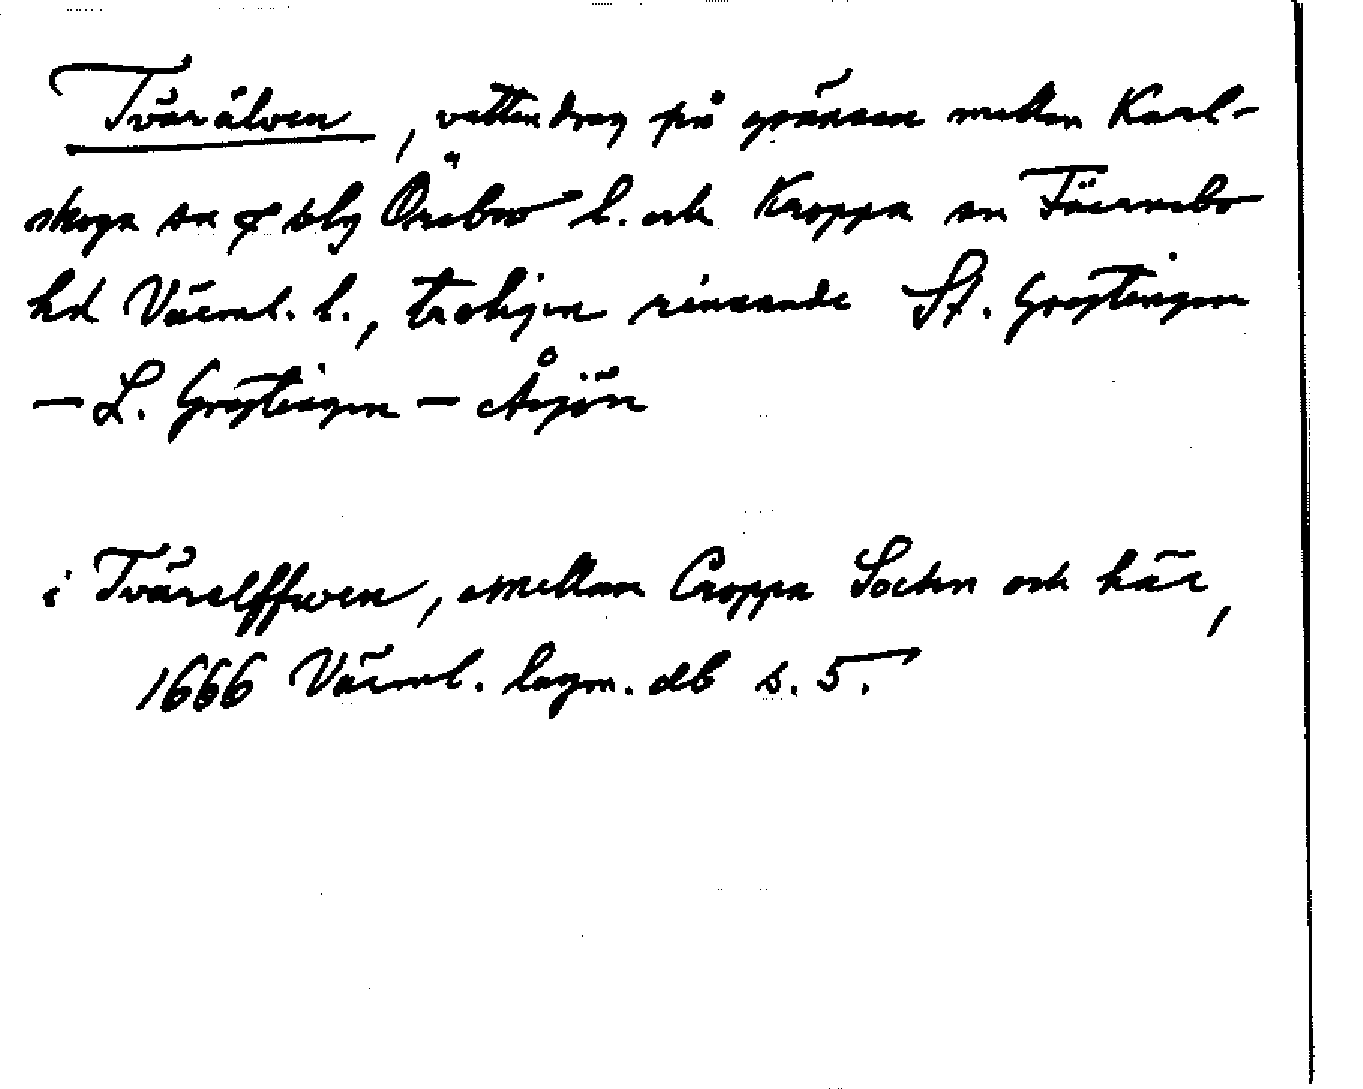 Tvärälven, vattendrag på gränsen mellan Karl-
skoga sn o blg Örebro l. och Kroppa sn Färnebo
hd Värml. l., troligen rinnande St. Grytingen
– L. Grytingen – Åsjön
i Tvärelffwen, emellan Croppa Sochn och här,
1666 Värml. lagm. db s. 5.